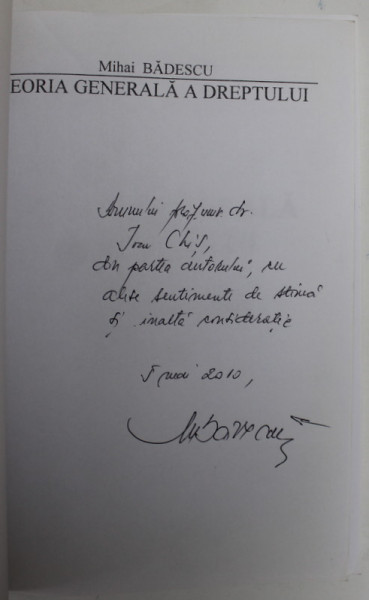 Mihai BĂDESCU
EORIA GENERALĂ A DREPTULUI
Domnului prof. univ. dr.
Ioan Chiș,
din partea autorului, cu
alese sentimente de stimă
și înaltă considerație
5 mai 2010,